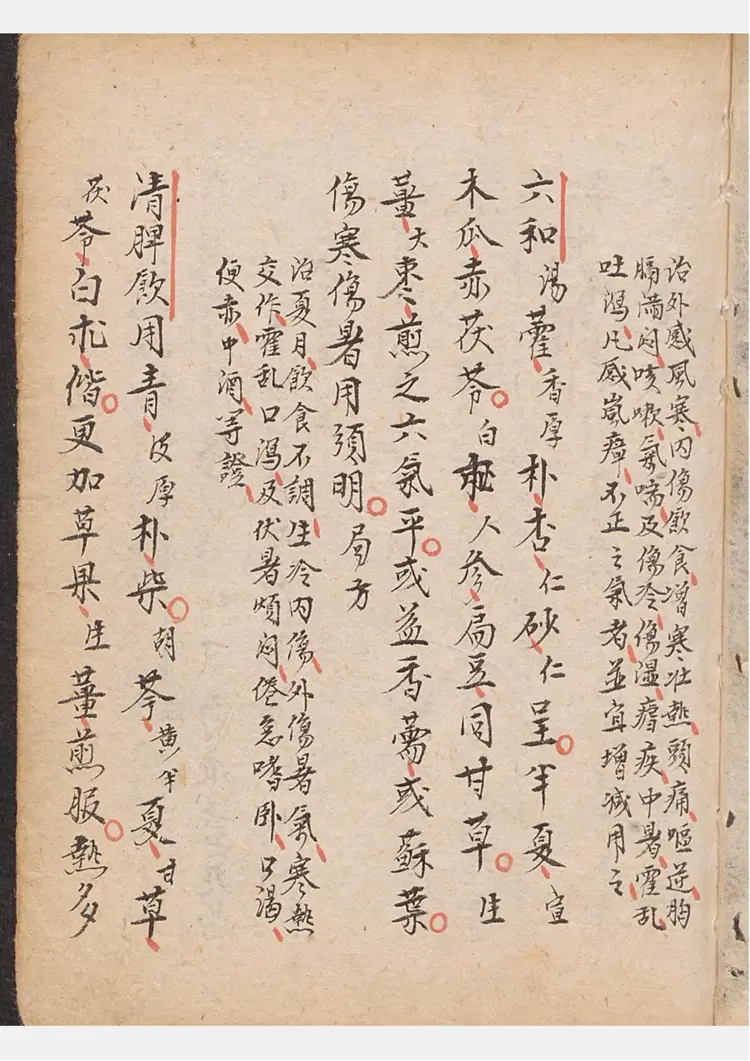 治外感風寒內傷飲食增寒壯熱頭痛嘔逆胸
膈滿悶咳嗽氣喘及傷冷傷濕瘧疾中暑霍乱
吐瀉凡感嵐瘴不正之氣者並宜增減用之
六和湯藿香厚朴杏仁砂仁呈半夏宣
木瓜赤茯苓白朮人參扁豆同甘草生
薑大棗煎之六氣平或益香薷或蘇葉
傷寒傷暑用須明局方
治夏月飲食不調生冷內傷外傷暑氣寒熱
交作霍乱口瀉及伏暑煩悶倦怠嗜卧口渴
便赤中酒等證
清脾飲用青皮厚朴柴胡芩黄半夏甘草
茯苓白朮偕更加草果生薑煎服熱多